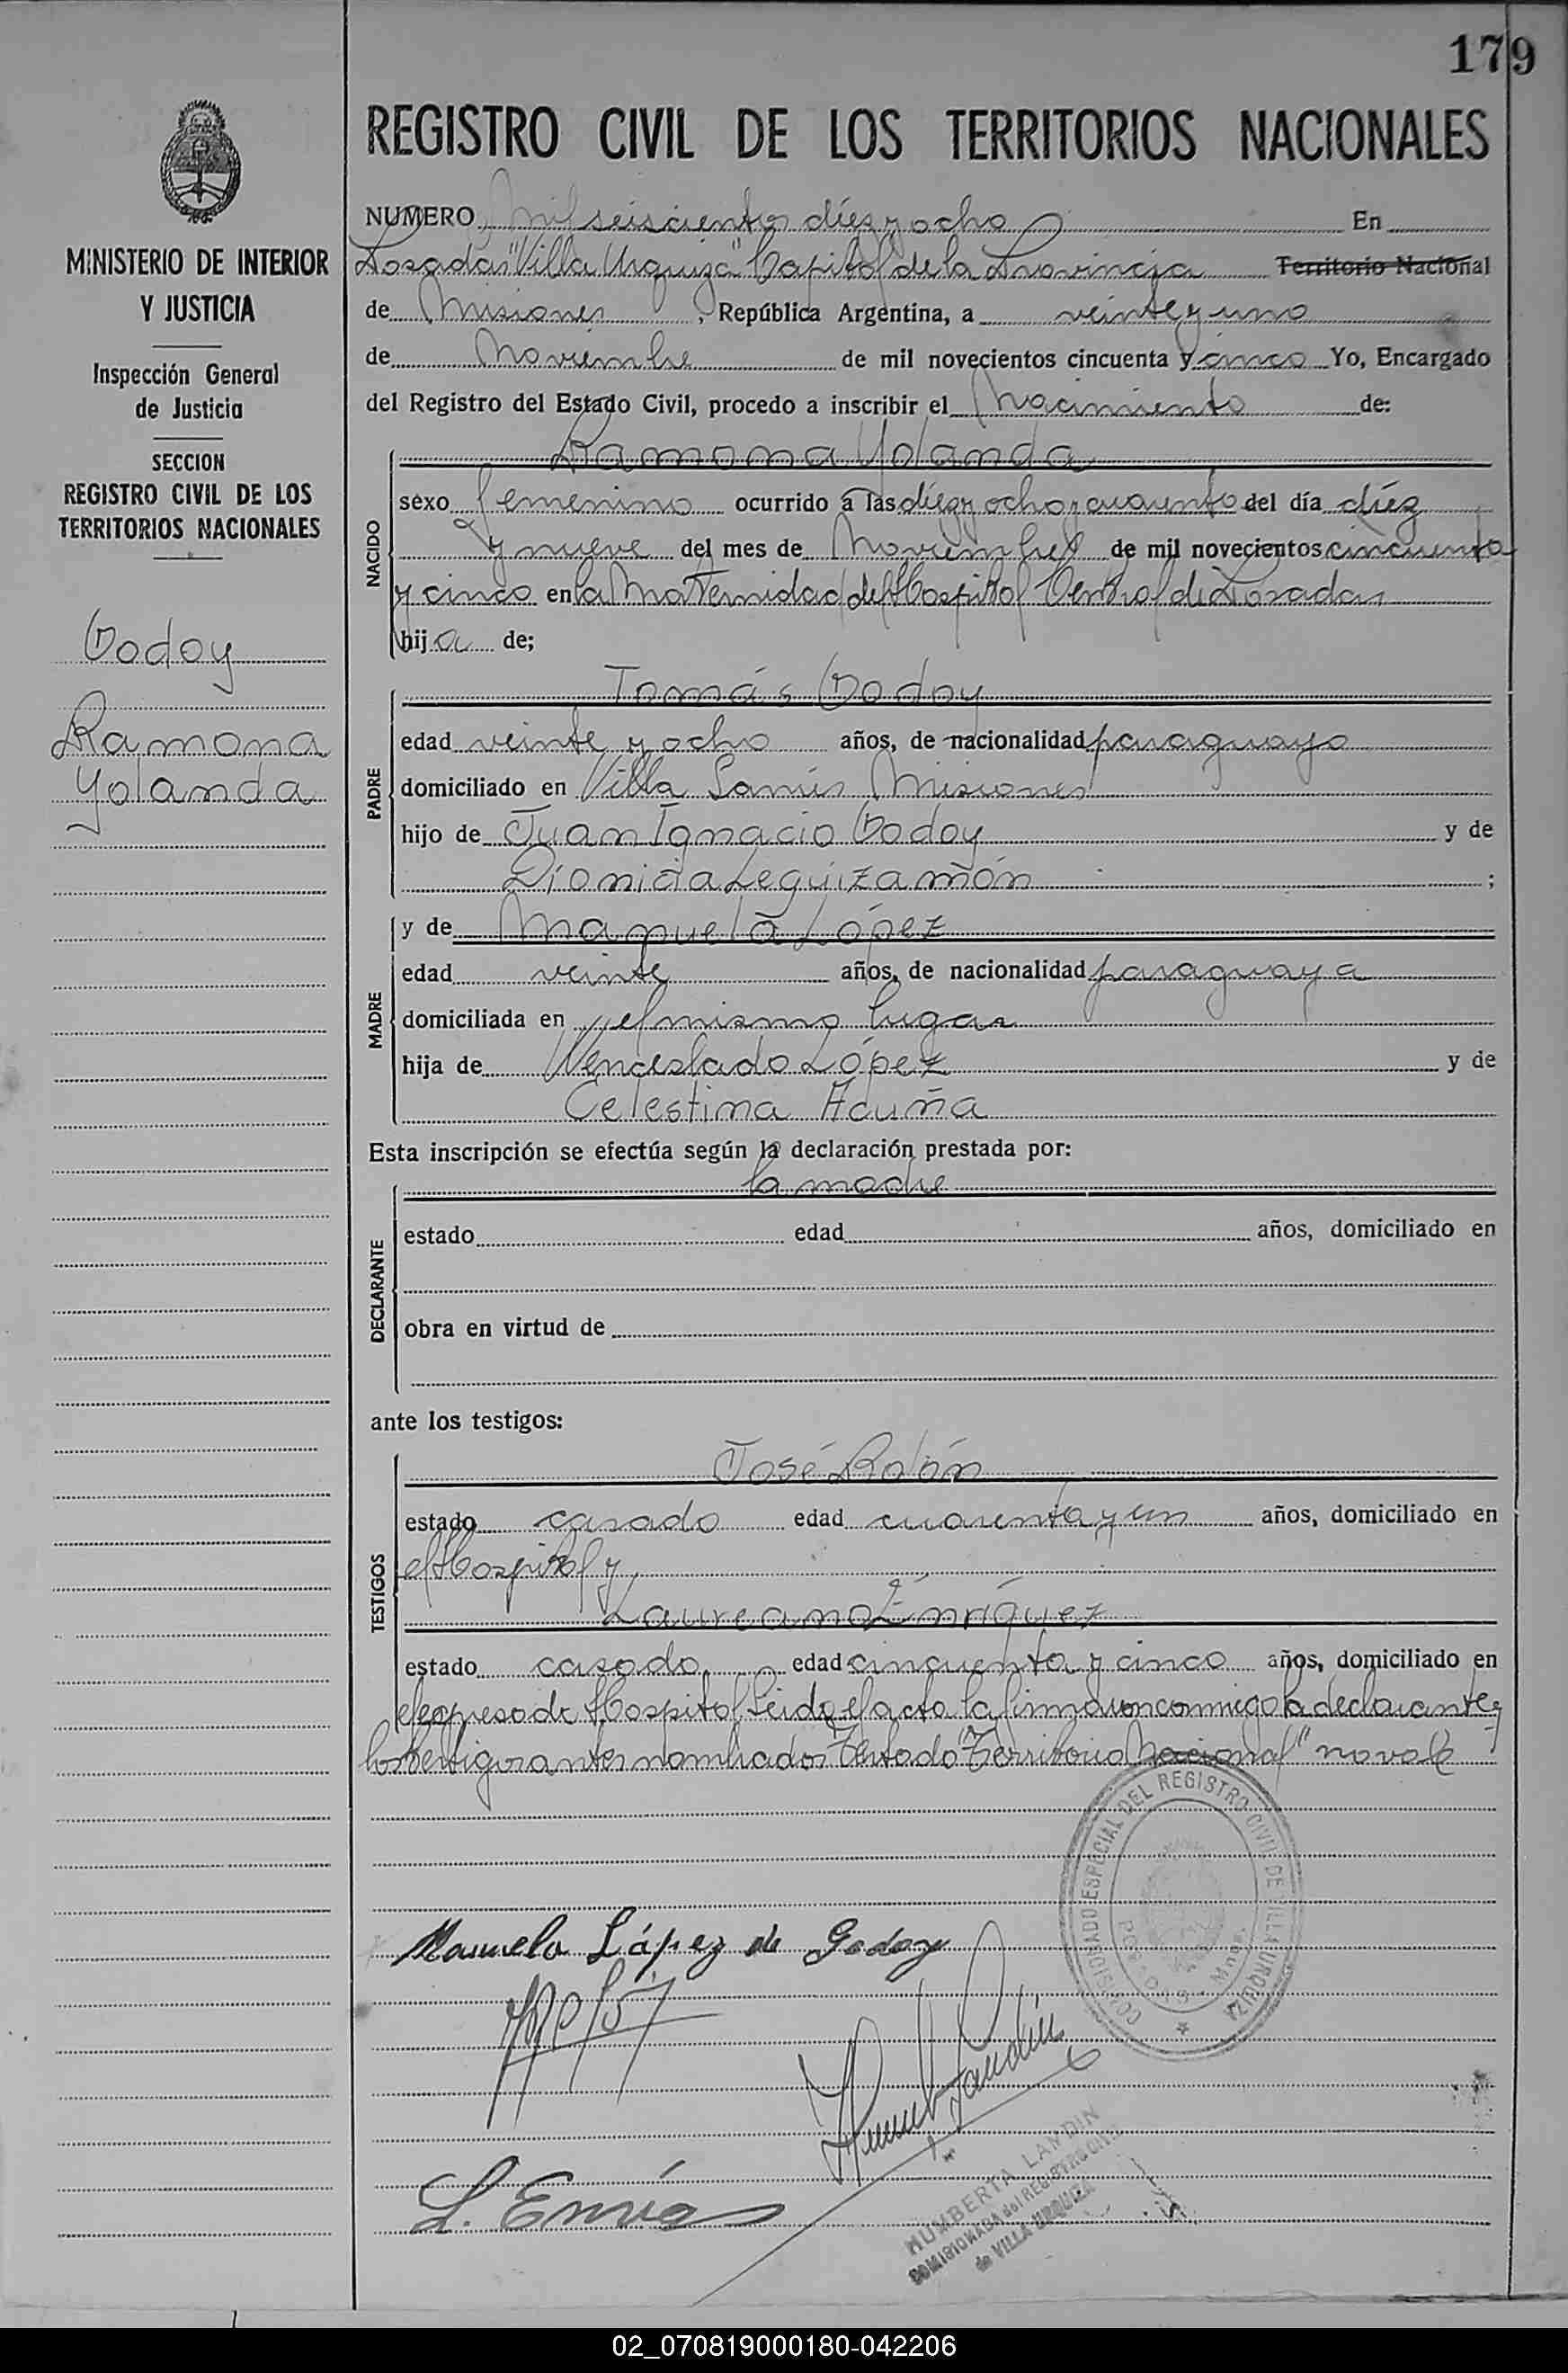 179
REGISTRO CIVIL DE LOS TERRITORIOS NACIONALES
MINISTERIO DE INTERIOR
Y JUSTICIA
Inspección General
de Justicia
SECCION
REGISTRO CIVIL DE LOS
TERRITORIOS NACIONALES
Godoy
Ramona
Yolanda
NUMERO Mil seiscientos diez y ocho En
Posadas "Villa Urquiza" Capital de la Provincia Territorio Nacional
de Misiones, República Argentina, a veinte y uno
de Noviembre de mil novecientos cincuenta y cinco Yo, Encargado
del Registro del Estado Civil, procedo a inscribir el Nacimiento de:
Ramona Yolanda
NACIDO
sexo femenino ocurrido a las diez y ocho y cuarenta del día diez
y nueve del mes de Noviembre de mil novecientos cincuenta
y cinco en la Maternidad del Hospital Central de Posadas
hija de;
Tomás Godoy
PADRE
edad veinte y ocho años, de nacionalidad paraguayo
domiciliado en Villa Lanús Misiones
hijo de Juan Ignacio Godoy y de
Dionicia Leguizamón ;
y de Manuela López
MADRE
edad veinte años, de nacionalidad paraguaya
domiciliada en el mismo lugar
hija de Wenceslado López y de
Celestina Acuña
Esta inscripción se efectúa según la declaración prestada por:
la madre
DECLARANTE
estado edad años, domiciliado en
obra en virtud de
ante los testigos:
José Rolón
TESTIGOS
estado casado edad cuarenta y un años, domiciliado en
el Hospital y
Laureano Enríquez
estado casado edad cincuenta y cinco años, domiciliado en
el expresado Hospital Leída el acta la firmaron conmigo la declarante y
los testigos antes nombrados Testado "Territorio Nacional" no vale
COMISIONADO ESPECIAL DEL REGISTRO CIVIL DE VILLA URQUIZA
POSADAS - Mnes.
Manuela López de Godoy
HUMBERTA LANDIN
COMISIONADA del REGISTRO CIVIL
de VILLA URQUIZA
02_070819000180-042206